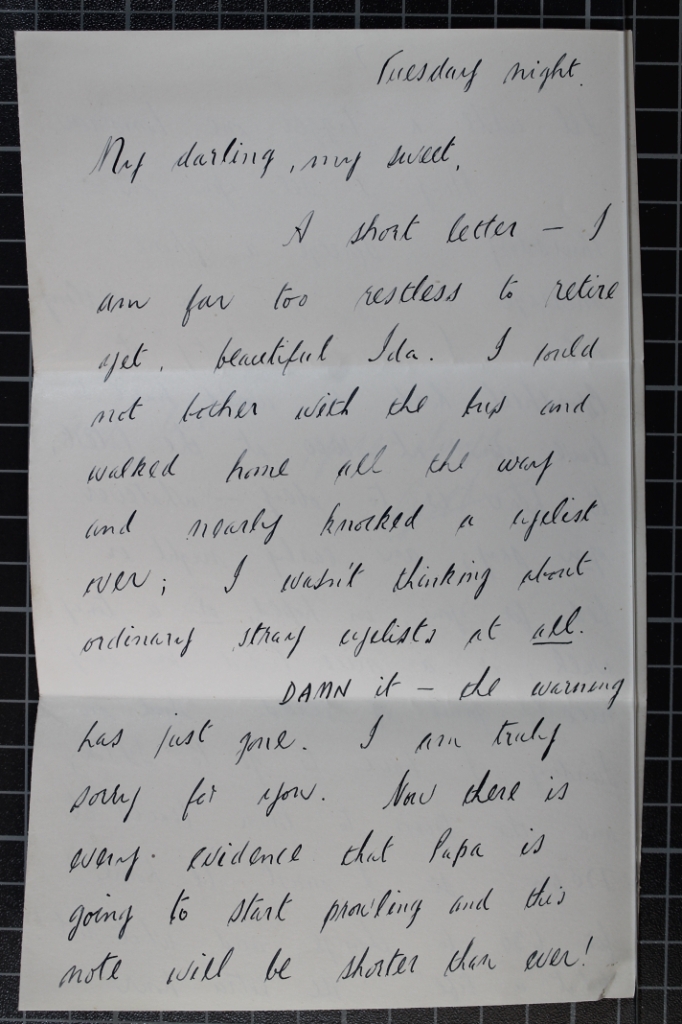 Tuesday night.
My darling, my sweet,
A short letter – I
am far too restless to retire
yet, beautiful Ida. I could
not bother with the bus and
walked home all the way
and nearly knocked a cyclist
over; I wasn't thinking about
ordinary stray cyclists at all.
DAMN it – the warning
has just gone. I am truly
sorry for you. Now there is
every evidence that Papa is
going to start prowling and this
note will be shorter than ever!